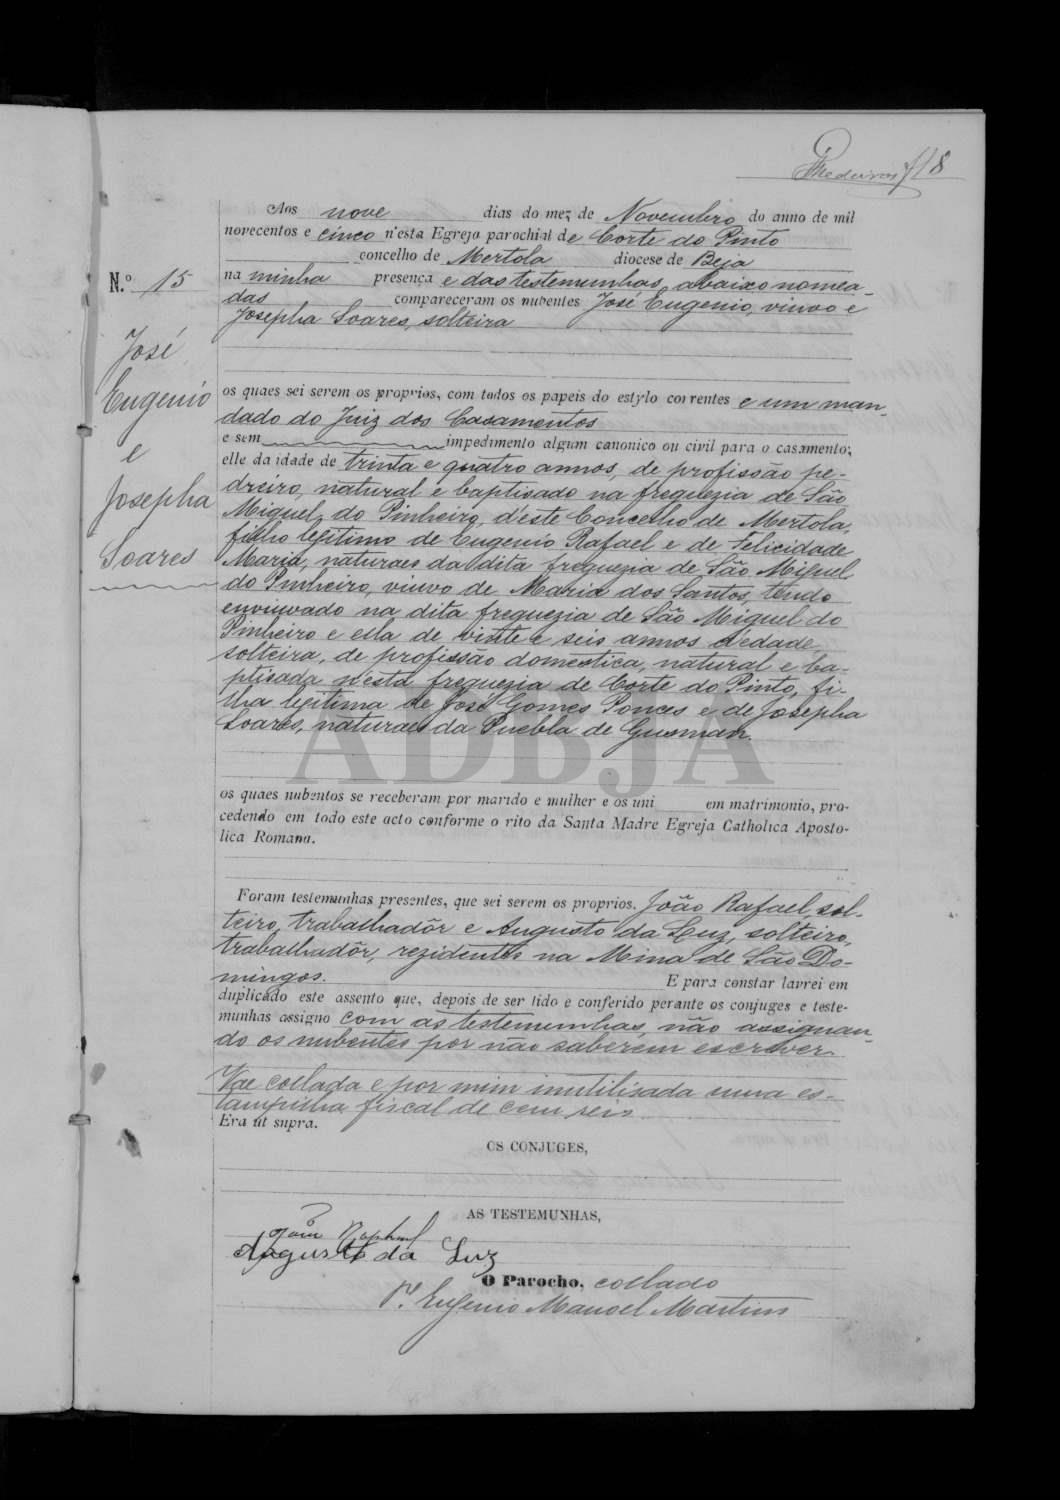 Medeiros f18
Aos nove dias do mez de Novembro do anno de mil
novecentos e cinco n'esta Egreja parochial de Corte do Pinto
concelho de Mertola diocese de Beja
N.º 15
na minha presença e das testemunhas abaixo nomea-
das compareceram os nubentes José Eugenio, viuvo e
Josepha Soares, solteira
José
Eugenio
e
Josepha
Soares
os quaes sei serem os proprios, com todos os papeis do estylo correntes e um man-
dado do Juiz dos Casamentos
e sem impedimento algum canonico ou civil para o casamento;
elle da idade de trinta e quatro annos, de profissão pe-
dreiro, natural e baptisado na freguezia de São
Miguel do Pinheiro, d'este Concelho de Mertola,
filho legitimo de Eugenio Rafael e de Felicidade
Maria, naturaes da dita freguezia de São Miguel
do Pinheiro, viuvo de Maria dos Santos, tendo
enviuvado na dita freguezia de São Miguel do
Pinheiro e ella de vinte e seis annos d'edade,
solteira, de profissão domestica, natural e ba-
ptisada n'esta freguezia de Corte do Pinto, fi-
lha legitima de José Gomes Ponces e de Josepha
Soares, naturaes da Puebla de Gusman.
ADBJA
os quaes nubentes se receberam por marido e mulher e os uni em matrimonio, pro-
cedendo em todo este acto conforme o rito da Santa Madre Egreja Catholica Aposto-
lica Romana.
Foram testemunhas presentes, que sei serem os proprios, João Rafael, sol-
teiro, trabalhadôr e Augusto da Luz, solteiro,
trabalhadôr, rezidentes na Mina de São Do-
mingos. E para constar lavrei em
duplicado este assento que, depois de ser lido e conferido perante os conjuges e teste-
munhas assigno com as testemunhas, não assignan-
do os nubentes por não saberem escrever.
Vae collada e por mim inutilisada uma es-
tampilha fiscal de cem reis
Era ut supra.
OS CONJUGES,
AS TESTEMUNHAS,
João Raphael
Augusto da Luz
O Parocho, collado
P.e Eugenio Manoel Martins